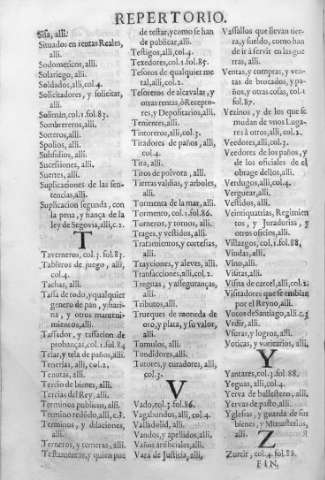 REPERTORIO.
Sisa, alli.
Situados en rentas Reales,
alli.
Sodometicos, alli.
Solariego, alli.
Soldados, alli, col.4.
Solicitadores, y solicitar,
alli.
Sombrereros, alli.
Sorteros, alli.
Spolios, alli.
Subsidios, alli.
Sucessiones, alli.
Suertes, alli.
Suplicaciones de las sen-
tencias, alli.
Suplicacion segunda, con
la pena, y fiança de la
ley de Segovia, alli, c.2.
T
Taverneros, col.3. fol.85.
Tableros de juego, alli,
col.4.
Tachas, alli.
Tasa de todo, y qualquier
genero de pan, y bazti-
mientos, alli.
Tassador, y tassacion de
probanças, col.1. fol.84
Triar, y tela de paños, alli.
Tenerias, alli, col.2.
Tenutas, alli.
Tercio de bienes, alli.
Tercias del Rey, alli.
Terminos publicos, alli.
Terminos, y dilaciones,
alli.
Terneros, y terneras, alli.
Testamentos, y quien pue
de testar, y como se han
de publicar, alli.
Testigos, alli, col.4.
Texedores, col.1. fol.85.
Tesoros de qualquier me
tal, alli, col.2.
Tesoreros de alcavalas, y
otras rentas, ò Recepto-
res, y Depositarios, alli.
Tenientes, alli.
Tintoreros, alli, col.3.
Tiradores de paños, alli,
col.4.
Tira, alli.
Tiros de polvora, alli.
Tierras valdias, y arboles,
alli.
Tormenta de la mar, alli.
Tormento, col.1. fol.86.
Torneros, y tornos, alli.
Trages, y vestidos, alli.
Tratamientos, y cortesias,
alli.
Trayciones, y aleves, alli.
Transacciones, alli, col.2.
Treguas, y asseguranças,
alli.
Tributos, alli.
Trueques de moneda de
oro, y plata, y su valor,
alli.
Tumulos, alli.
Tundidores, alli.
Tutores, y curadores, alli,
col.3.
V
Vado, col.3. fol.86.
Vagabundos, alli, col.4.
Vandos, y apellidos, alli.
Vandolero, alli.
Vara de Justicia, alli,
Vassallos que llevan tier-
ra, y sueldo, como han
de ir à servir en las guer
ras, alli.
Ventas, y compras, y ven-
tas de brocados, y pa-
ños, y otras cosas, col.1
fol.87.
Vezinos, y de los que se
mudan de vnos Luga-
res à otros, alli, col.2.
Veedores, alli, col.3.
Veedores de los paños, y
de los oficiales de el
obrage dellos, alli.
Verdugos, alli, col.4.
Verguear, alli.
Vestidos, alli.
Veintiquatrias, Regimien
tos, y Juradurias, y
otros oficios, alli.
Villazgos, col.1. fol.88.
Viudas, alli.
Vino, alli.
Visitas, alli.
Visita de carcel, alli, col.2.
Visitadores que se embian
por el Reyno, alli.
Votos de Santiago, alli, c.3
Vsuras, y logros, alli.
Y
Yantares, col.3. fol.88.
Yeguas, alli, col.4.
Yerva de ballestero, alli.
Yervas de pasto, alli.
Yglesias, y guarda de sus
bienes, y Ministerios,
alli.
Z
Zurcir, col.4. fol.88.
FIN.